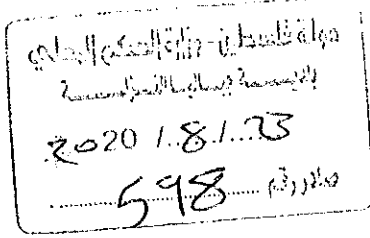 دولة فلسطين - وزارة الحكم المحلي
بلديــة
2020 / 8 / 23
صادر رقم 598